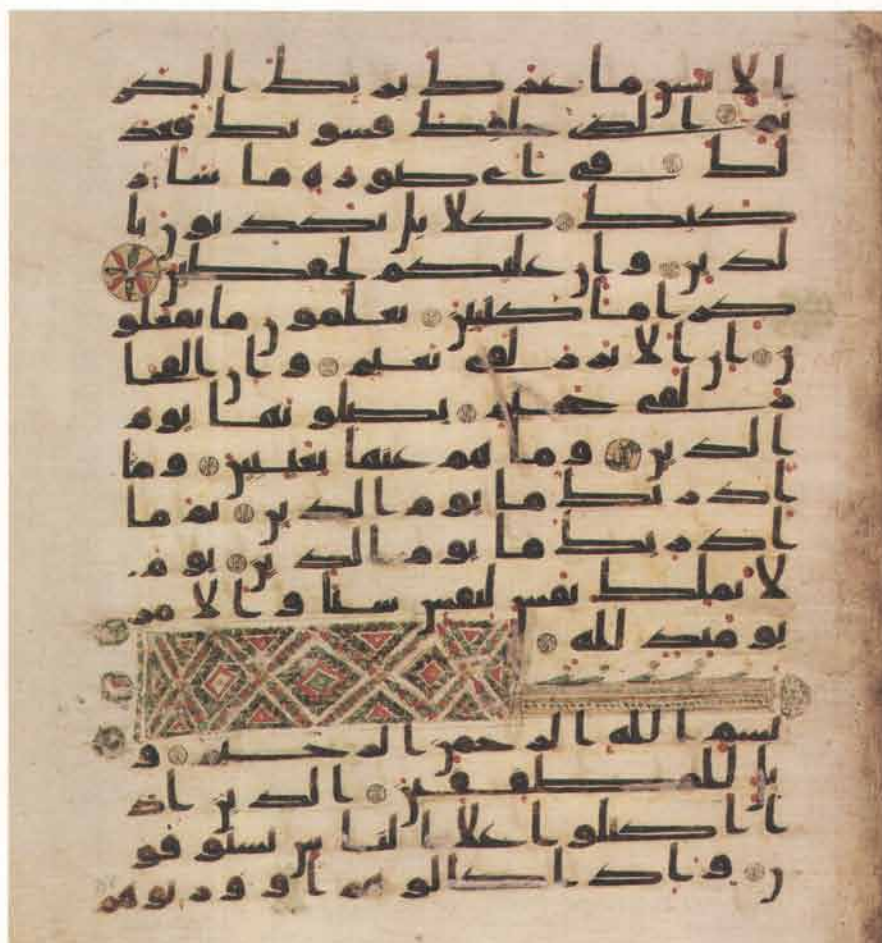 الانسن ما غرك بربك الكر
يم الذى خلقك فسويك فعد
لك فى اى صورة ما شا
ركبك كلا بل تكذبون با
لدين وان عليكم لحفظين
كراما كتبين يعلمون ما تفعلو
ن ان الابرر لفى نعيم وان الفجا
ر لفى جحيم يصلونها يوم
الدين وما هم عنها بغيبين وما
ادريك ما يوم الدين ثم ما
ادريك ما يوم الدين يوم
لا تملك نفس لنفس شيا والامر
يومئذ لله
بسم الله الرحمن الرحيم و
يل للمطففين الذين اذ
ا اكتلوا علا الناس يستوفو
ن واذا كالوهم او وزنوهم